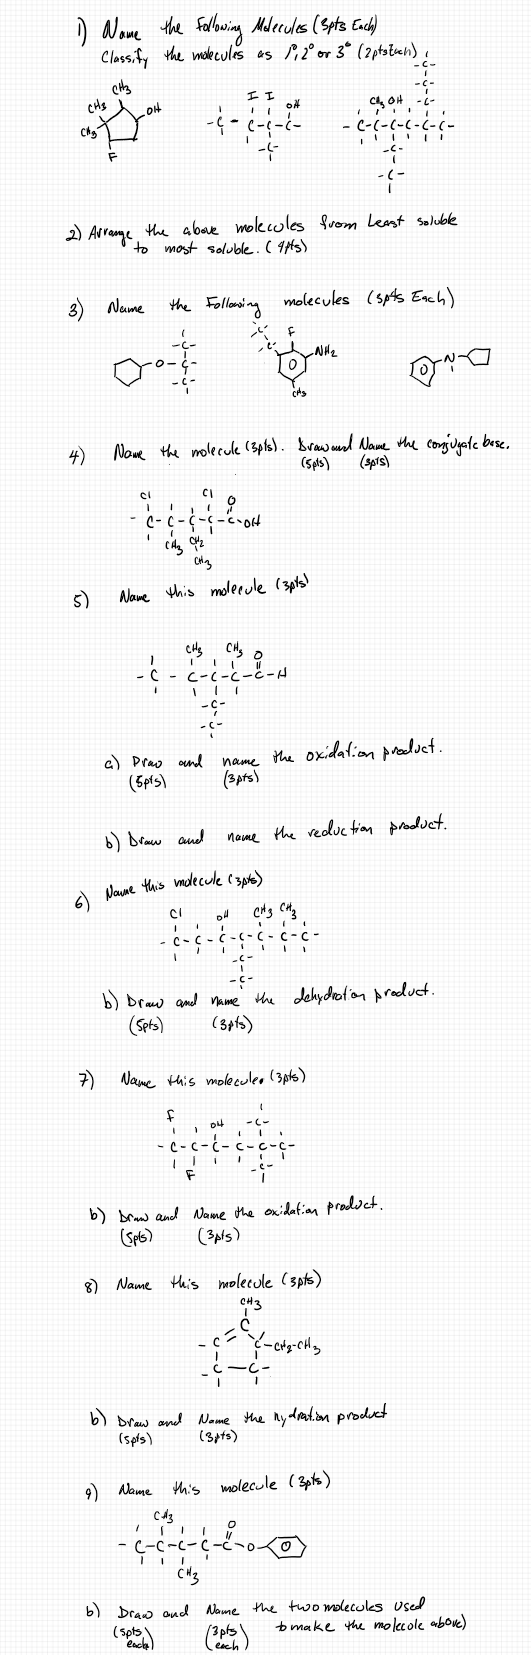 1) Name the following Molecules (3pts Each)
Classify the molecules as 1°, 2° or 3° (2pts Each)
CH3
CH3
OH
CH3
F
I I
OH
-C-C-C-C-
-C-
-C-
-C-
CH3 OH -C-
-C-C-C-C-C-C-
-C-
-C-
2) Arrange the above molecules from Least soluble
to most soluble. (4pts)
3) Name the Following molecules (3pts Each)
-C-
-O-C-
-C-
C
C
F
NH2
CH3
-N-
4) Name the molecule (3pts). Draw and Name the conjugate base.
(5pts) (3pts)
Cl Cl O
-C-C-C-C-C-OH
CH3 CH2
CH3
5) Name this molecule (3pts)
CH3 CH3 O
-C-C-C-C-C-H
-C-
-C-
a) Draw and name the oxidation product.
(5pts) (3pts)
b) Draw and name the reduction product.
6) Name this molecule (3pts)
Cl OH CH3 CH3
-C-C-C-C-C-C-C-
-C-
-C-
b) Draw and Name the dehydration product.
(5pts) (3pts)
7) Name this molecule. (3pts)
F OH -C-
-C-C-C-C-C-C-
F -C-
b) Draw and Name the oxidation product.
(5pts) (3pts)
8) Name this molecule (3pts)
CH3
C
-C C-CH2-CH3
-C-C-
b) Draw and Name the hydration product
(5pts) (3pts)
9) Name this molecule (3pts)
CH3 O
-C-C-C-C-C-O-
CH3
b) Draw and Name the two molecules used
(5pts each) (3pts each) to make the molecule above)